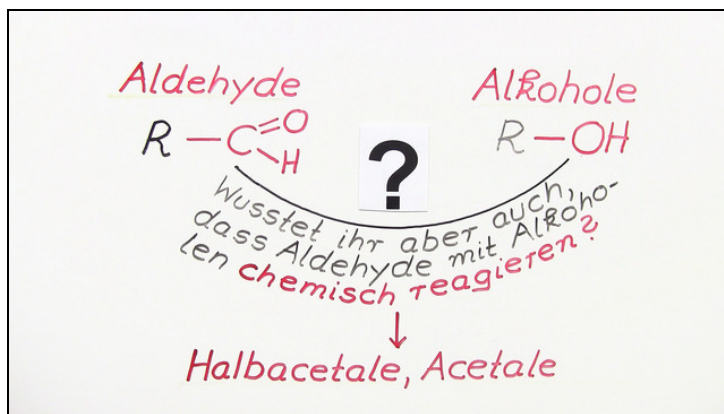 Aldehyde
Alkohole
R—C=O
H
R—OH
?
Wusstet ihr aber auch,
dass Aldehyde mit Alkoho-
len chemisch reagieren?
↓
Halbacetale, Acetale